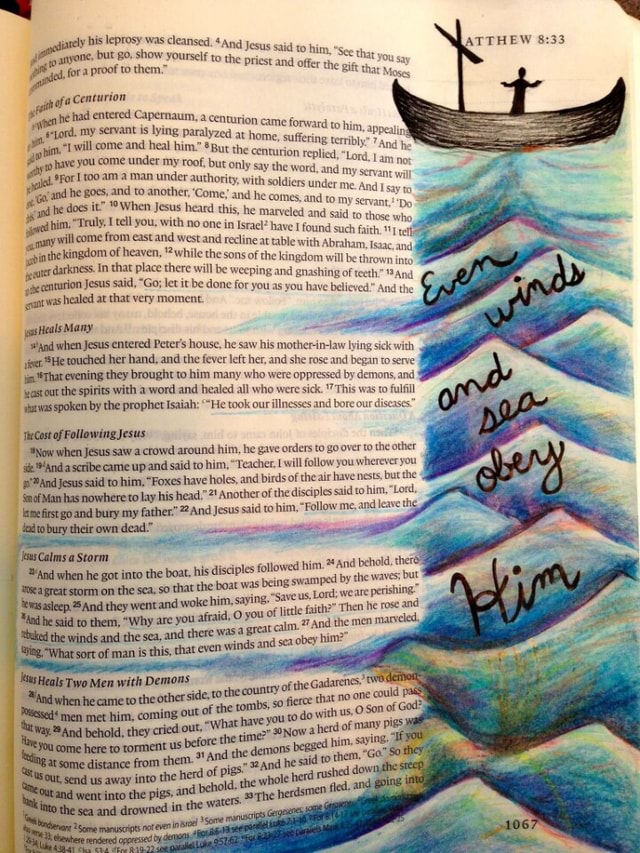 MATTHEW 8:33
immediately his leprosy was cleansed. 4And Jesus said to him, "See that you say
to anyone, but go, show yourself to the priest and offer the gift that Moses
for a proof to them."
Faith of a Centurion
When he had entered Capernaum, a centurion came forward to him, appealing
him, 6"Lord, my servant is lying paralyzed at home, suffering terribly." 7And he
to him, "I will come and heal him." 8But the centurion replied, "Lord, I am not
to have you come under my roof, but only say the word, and my servant will
healed. 9For I too am a man under authority, with soldiers under me. And I say to
'Go,' and he goes, and to another, 'Come,' and he comes, and to my servant,1 'Do
and he does it." 10When Jesus heard this, he marveled and said to those who
him, "Truly, I tell you, with no one in Israel2 have I found such faith. 11I tell
many will come from east and west and recline at table with Abraham, Isaac, and
in the kingdom of heaven, 12while the sons of the kingdom will be thrown into
outer darkness. In that place there will be weeping and gnashing of teeth." 13And
the centurion Jesus said, "Go; let it be done for you as you have believed." And the
servant was healed at that very moment.
Jesus Heals Many
14And when Jesus entered Peter's house, he saw his mother-in-law lying sick with
fever. 15He touched her hand, and the fever left her, and she rose and began to serve
him. 16That evening they brought to him many who were oppressed by demons, and
he cast out the spirits with a word and healed all who were sick. 17This was to fulfill
what was spoken by the prophet Isaiah: "He took our illnesses and bore our diseases."
The Cost of Following Jesus
18Now when Jesus saw a crowd around him, he gave orders to go over to the other
side. 19And a scribe came up and said to him, "Teacher, I will follow you wherever you
go." 20And Jesus said to him, "Foxes have holes, and birds of the air have nests, but the
Son of Man has nowhere to lay his head." 21Another of the disciples said to him, "Lord,
let me first go and bury my father." 22And Jesus said to him, "Follow me, and leave the
dead to bury their own dead."
Jesus Calms a Storm
23And when he got into the boat, his disciples followed him. 24And behold, there
arose a great storm on the sea, so that the boat was being swamped by the waves; but
he was asleep. 25And they went and woke him, saying, "Save us, Lord; we are perishing."
26And he said to them, "Why are you afraid, O you of little faith?" Then he rose and
rebuked the winds and the sea, and there was a great calm. 27And the men marveled,
saying, "What sort of man is this, that even winds and sea obey him?"
Jesus Heals Two Men with Demons
28And when he came to the other side, to the country of the Gadarenes,3 two demon-
possessed4 men met him, coming out of the tombs, so fierce that no one could pass
that way. 29And behold, they cried out, "What have you to do with us, O Son of God?
Have you come here to torment us before the time?" 30Now a herd of many pigs was
feeding at some distance from them. 31And the demons begged him, saying, "If you
cast us out, send us away into the herd of pigs." 32And he said to them, "Go." So they
came out and went into the pigs, and behold, the whole herd rushed down the steep
bank into the sea and drowned in the waters. 33The herdsmen fled, and going into
bondservant 2 Some manuscripts not even in Israel 3 Some manuscripts Gergesenes; some
elsewhere rendered oppressed by demons
Even
winds
and
sea
obey
Him
1067